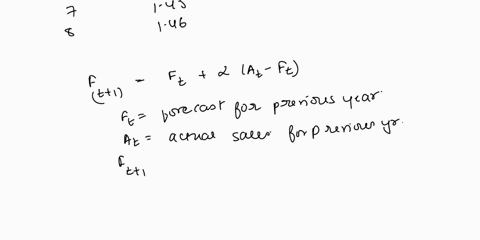 7 1.45
8 1.46
F(t+1) = Ft + α (At - Ft)
Ft = forecast for previous year.
At = actual sales for previous yr.
Ft+1